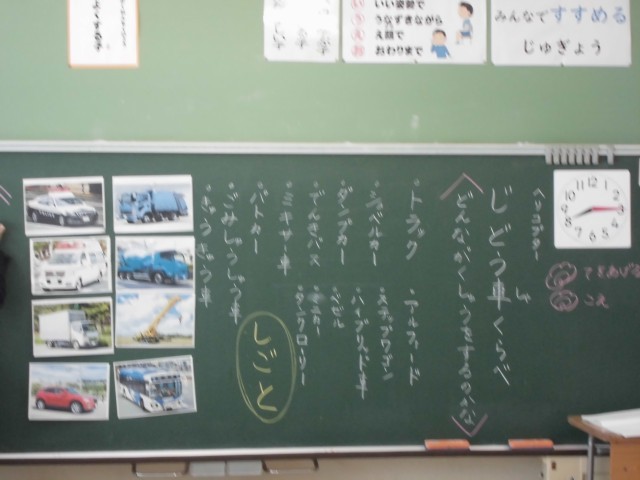 いい姿勢で
うなずきながら
え顔で
おわりまで
みんなですすめる
じゅぎょう
12
11 1
10 2
9 3
8 4
7 6 5
ヘリコプター
じどう車くらべ
しゃ
どんながくしゅうをするのかな
・トラック
・アルファード
・ショベルカー
・ステップワゴン
・ダンプカー
・ハイブリッド車
・でんきバス
・ベゼル
・ミキサー車
・タンクローリー
・パトカー
・ごみしゅうしゅう車
・きゅうきゅう車
しごと
てをあげる
こえ